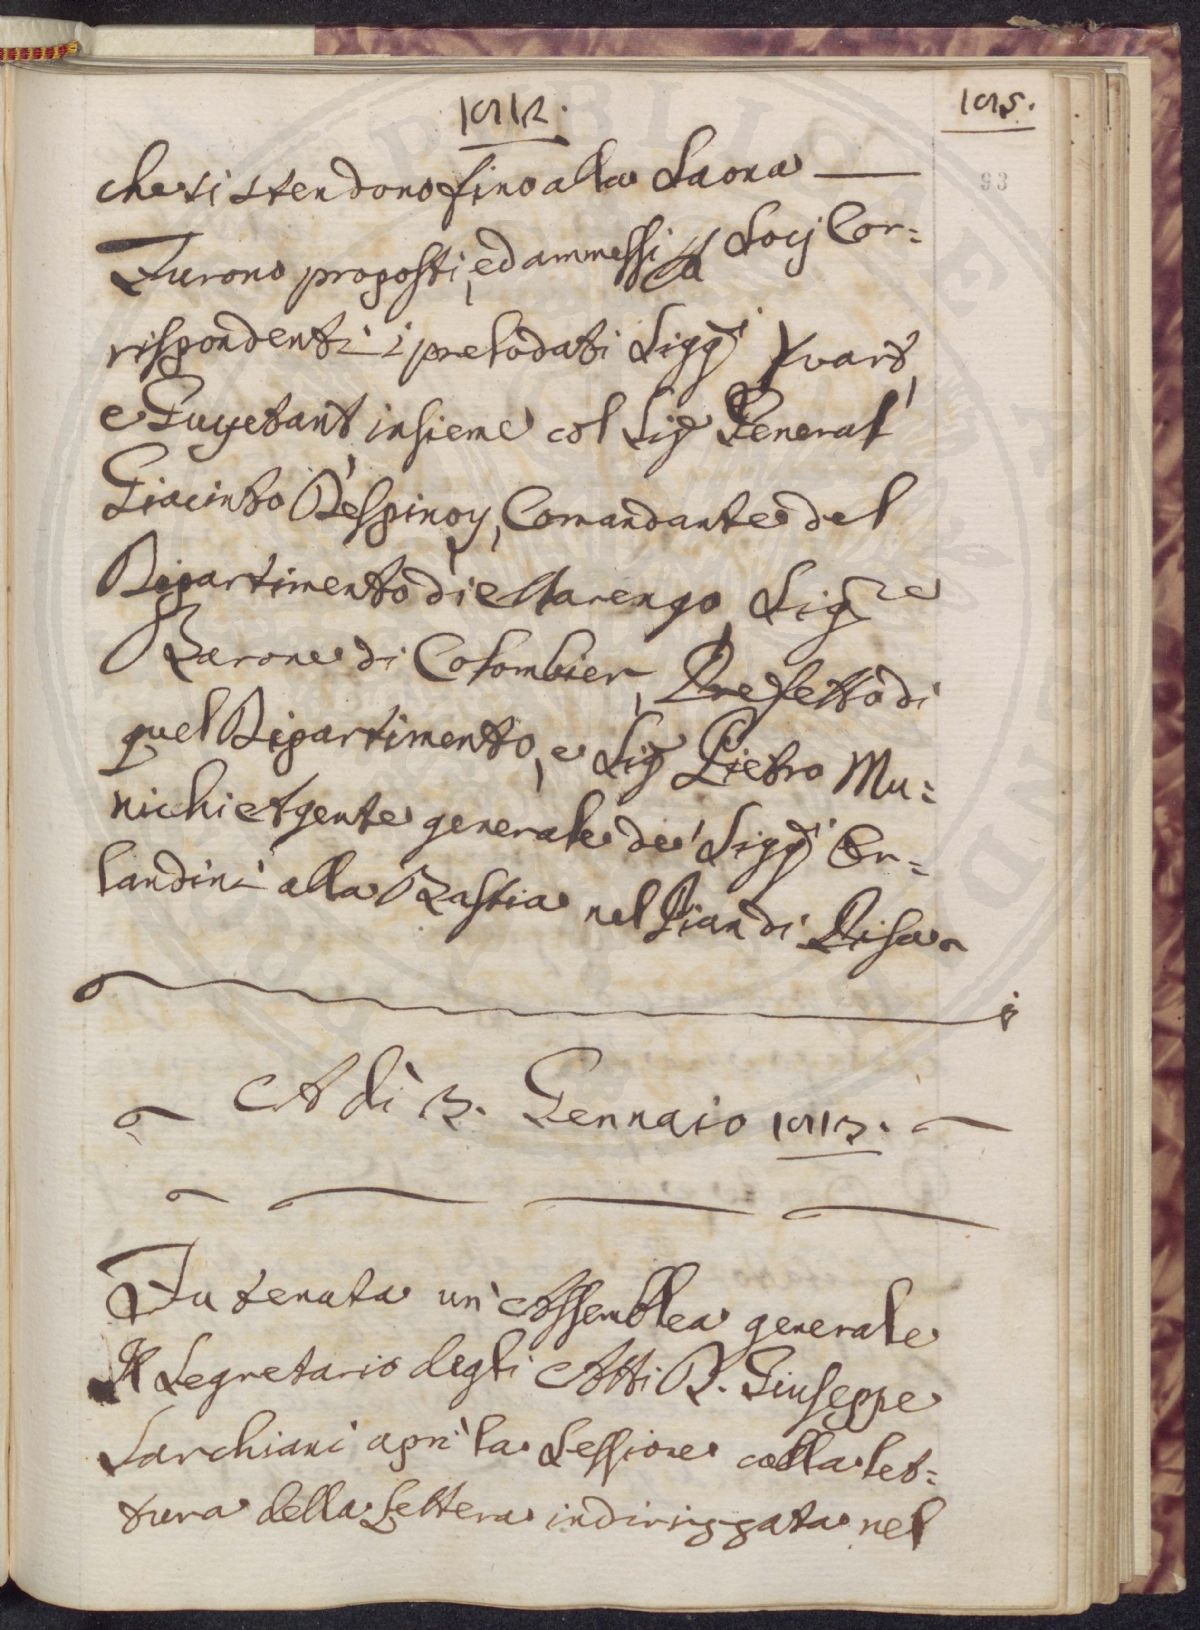 1812.
185.
93
che si stendono fino alla Saona
Furono proposti, ed ammessi p Socj Cor=
rispondenti i prelodati Sigg.ri Yvart,
e Guyetant, insieme col Sig.e General
Giacinto D'espinoy, Comandante del
Dipartimento di Marengo, Sig.re
Barone di Colombier, Prefetto di
quel Dipartimento, e Sig.e Pietro Mu=
nichi Agente generale de' Sigg.ri Or=
landini alla Bastia nel Pian di Pisa
A dì 3. Gennaio 1813.
Fu tenuta un' Assemblea generale
Il Segretario degli Atti D. Giuseppe
Sarchiani aprì la Sessione colla let=
tura della Lettera indirizzata nel